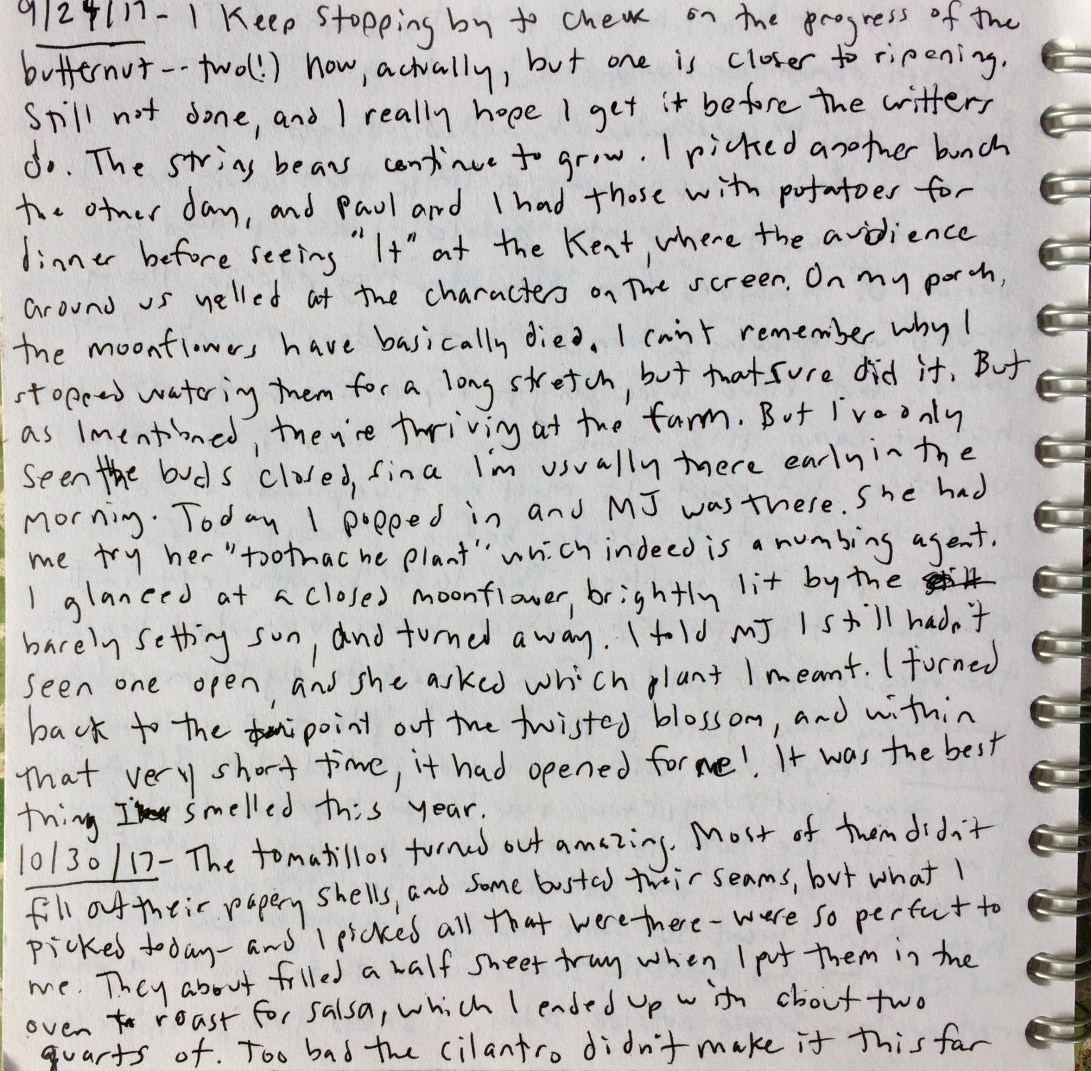 9/24/17 - I keep stopping by to check on the progress of the
butternut -- two(!) now, actually, but one is closer to ripening.
Still not done, and I really hope I get it before the critters
do. The string beans continue to grow. I picked another bunch
the other day, and Paul and I had those with potatoes for
dinner before seeing "It" at the Kent, where the audience
around us yelled at the characters on the screen. On my porch,
the moonflowers have basically died. I can't remember why I
stopped watering them for a long stretch, but that sure did it. But
as I mentioned, they're thriving at the farm. But I've only
seen the buds closed, since I'm usually there early in the
morning. Today I popped in and MJ was there. She had
me try her "toothache plant" which indeed is a numbing agent.
I glanced at a closed moonflower, brightly lit by the still
barely setting sun, and turned away. I told MJ I still hadn't
seen one open, and she asked which plant I meant. I turned
back to the point out the twisted blossom, and within
that very short time, it had opened for me! It was the best
thing I smelled this year.
10/30/17 - The tomatillos turned out amazing. Most of them didn't
fill out their papery shells, and some busted their seams, but what I
picked today - and I picked all that were there - were so perfect to
me. They about filled a half sheet tray when I put them in the
oven to roast for salsa, which I ended up with about two
quarts of. Too bad the cilantro didn't make it this far